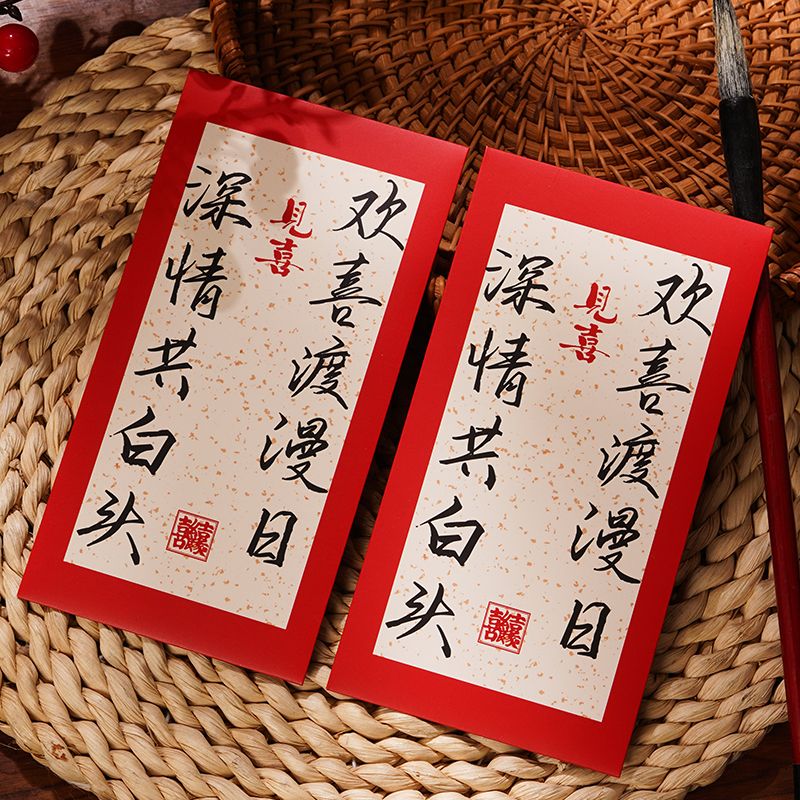 欢喜渡漫日
见喜
深情共白头
欢喜渡漫日
见喜
深情共白头